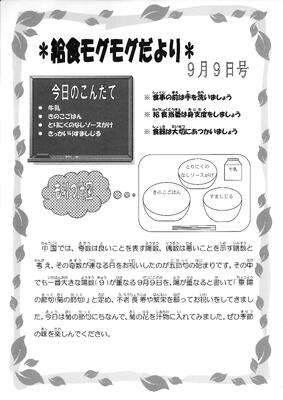 *給食モグモグだより*
9月9日号
今日のこんたて
・牛乳
・きのこごはん
・とりにくのなしソースがけ
・きっかいりすましじる
※ 食事の前は手を洗いましょう
※ 給食当番は身支度をしましょう
※ 食器は大切にあつかいましょう
とりにくの
なしソースがけ
牛乳
きのこごはん
すましじる
中国では、奇数は良いことを表す陽数、偶数は悪いことを示す陰数と
考え、その奇数が連なる日をお祝いしたのが五節句の始まりです。その中
でも一番大きな陽数(9)が重なる9月9日を、陽が重なると書いて「重陽
の節句(菊の節句)」と定め、不老長寿や繁栄を願ってお祝いをしてきまし
た。今日は菊の節句にちなんで、菊の花を汁物に入れてみました。ぜひ季節
の味を楽しんでください。